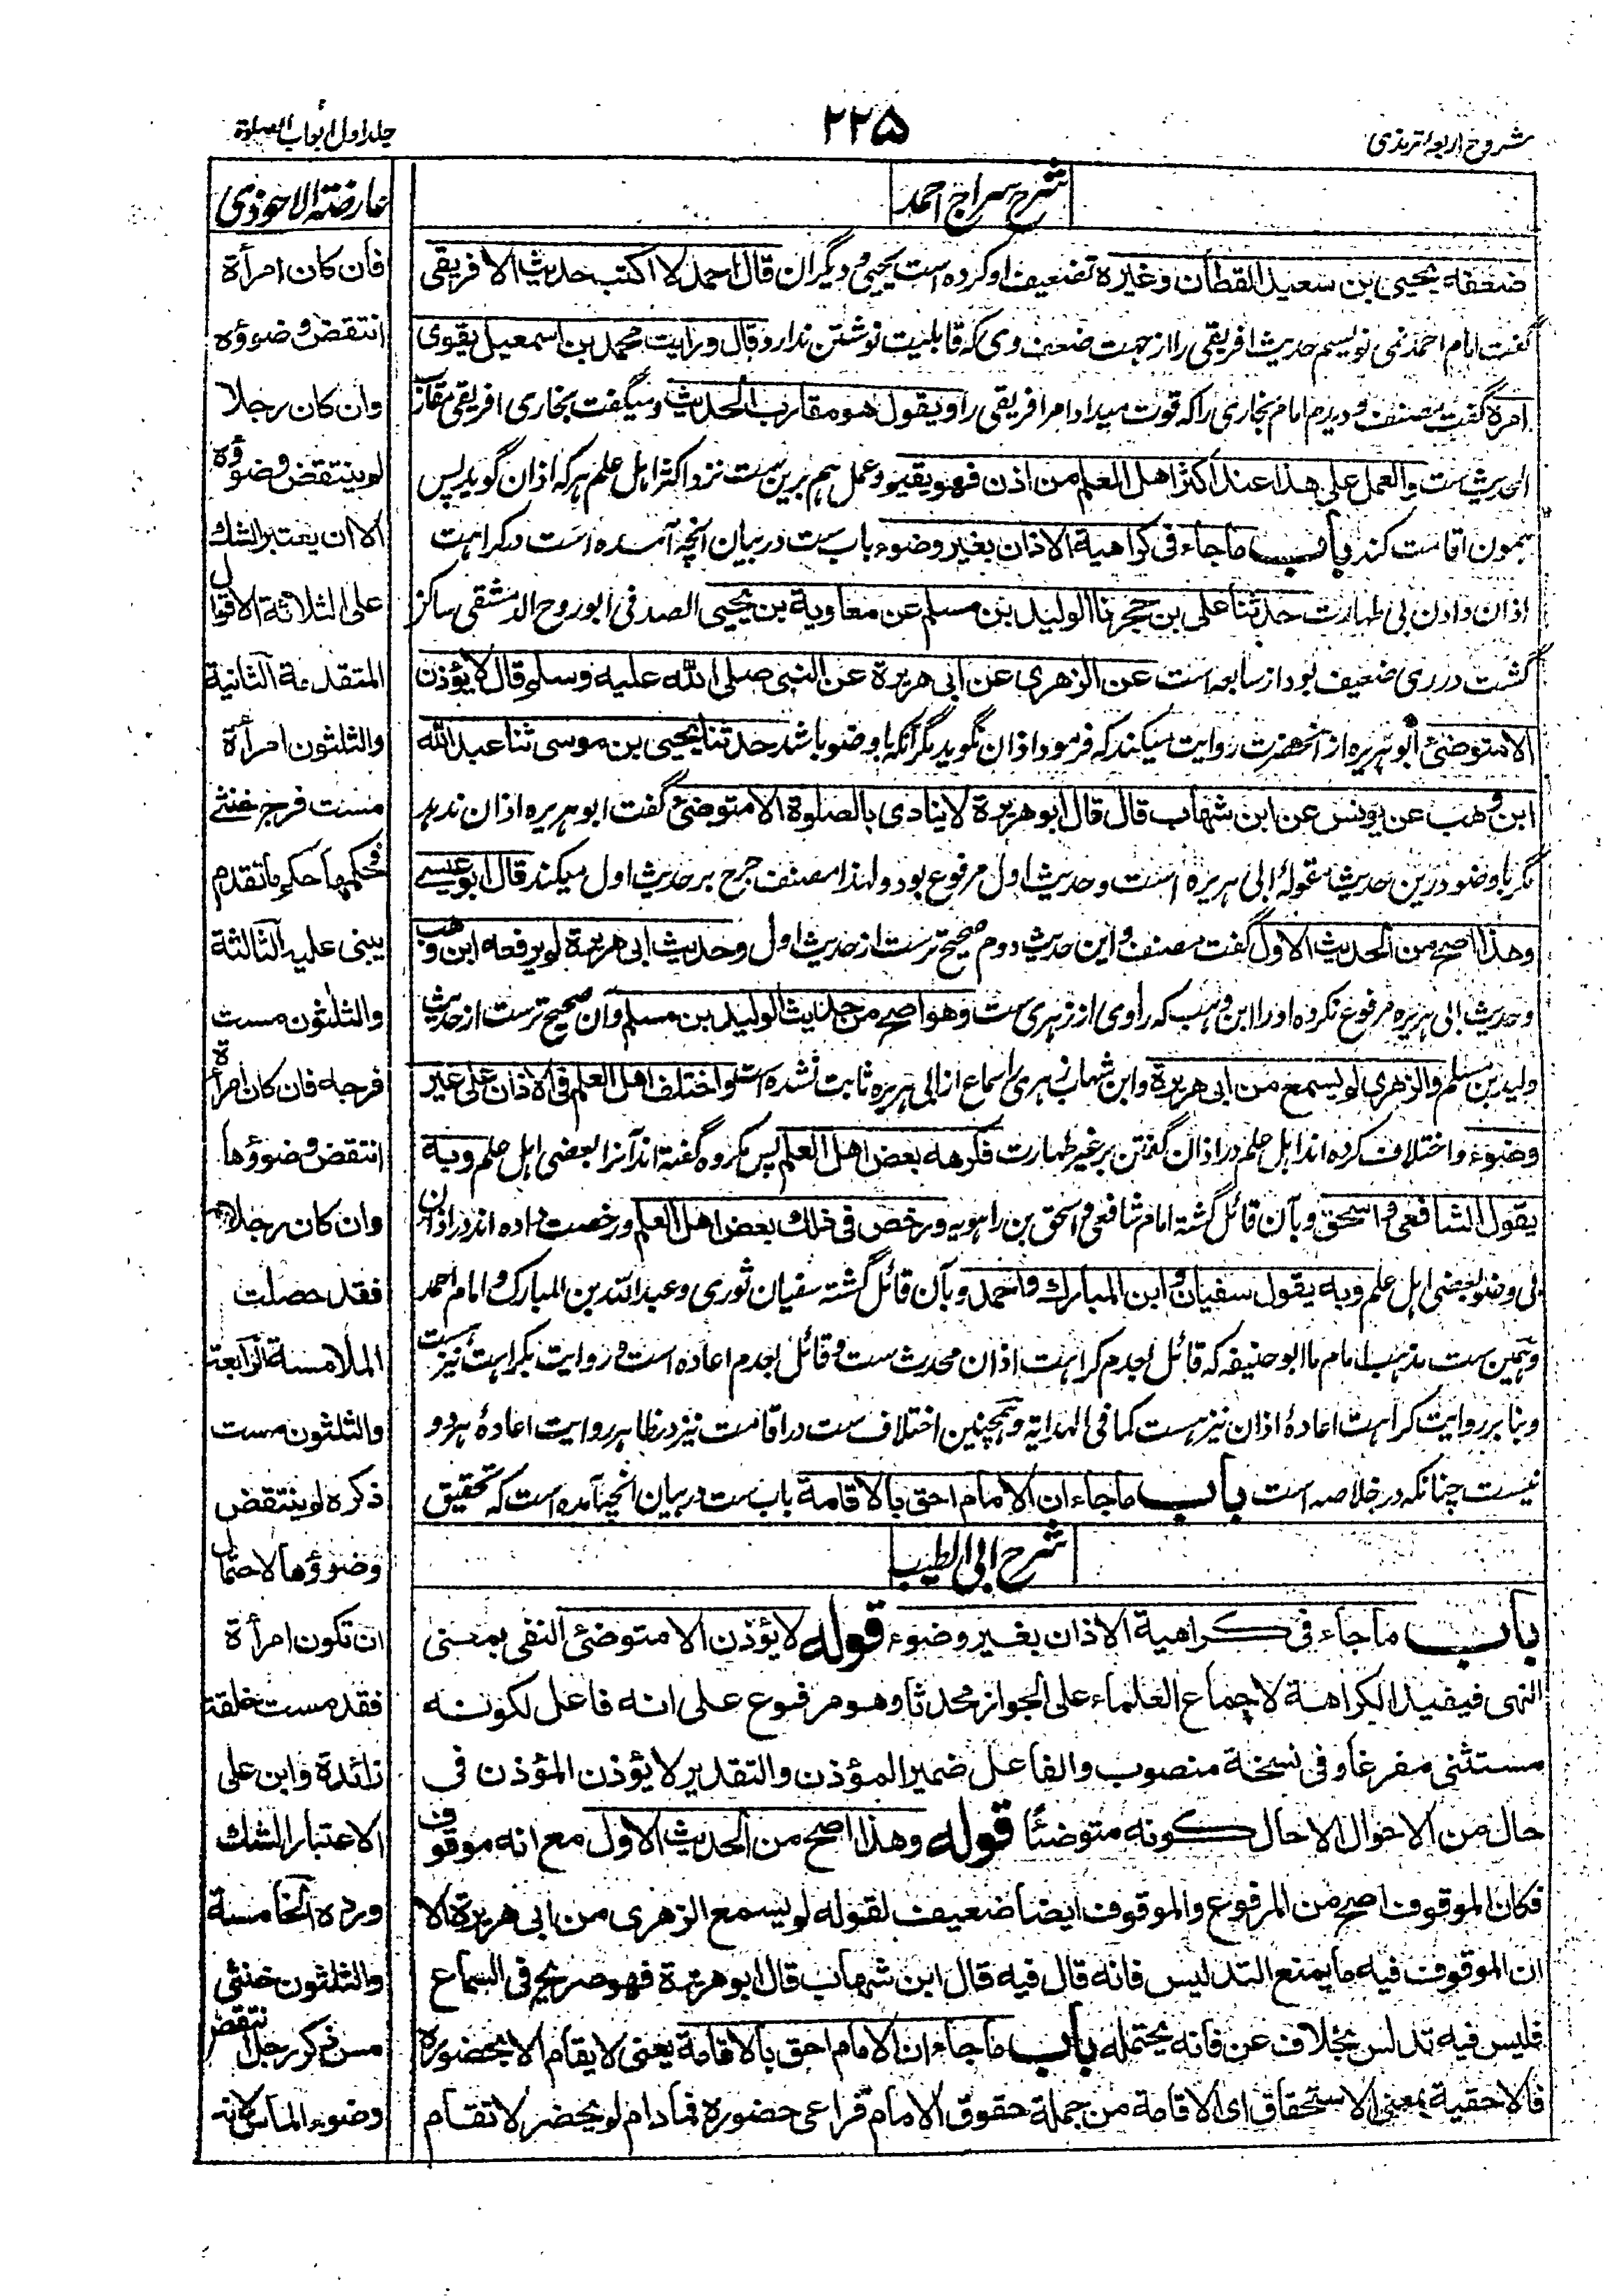 شروح اربعہ ترمذی
۲۲۵
جلد اول ابواب الصلوة
شرح سراج احمد
ضعفه يحيى بن سعيد القطان وغيره تضعیف او کرده است یحیی و دیگران قال احمد لا اكتب حديث الافريقى
گفت امام احمد نمی نویسم حدیث افریقی را از جهت ضعف وی که قابلیت نوشتن ندارد وقال ورايت محمد بن اسمعيل يقوى
امره گفت مصنف و دیدم امام بخاری را که قوت میداد امر افریقی را ويقول هو مقارب الحديث و میگفت بخاری افریقی مقارب
الحدیث ست والعمل على هذا عند اكثر اهل العلم من اذن فهو يقيم و عمل هم برین ست نزد اکثر اهل علم هر که اذان گوید پس
همون اقامت کند باب ما جاء فى كراهية الاذان بغير وضوء باب ست در بیان آنچه آمده است در کراهت
اذان دادن بی طهارت حدثنا على بن حجر نا الوليد بن مسلم عن معاوية بن يحيى الصدفى ابو روح الدمشقی ساکن
گشت در ری ضعیف بود از سابعه است عن الزهرى عن ابى هريرة عن النبى صلى الله عليه وسلم قال لا يؤذن
الا متوضئ ابو هریره از آنحضرت روایت میکند که فرمود اذان نگوید مگر آنکه با وضو باشد حدثنا يحيى بن موسى ثنا عبد الله
ابن وهب عن يونس عن ابن شهاب قال قال ابو هريرة لا ينادى بالصلوة الا متوضئ گفت ابو هریره اذان ندهد
مگر با وضو درین حدیث مقوله ابی هریره است و حدیث اول مرفوع بود ولهذا مصنف جرح بر حدیث اول میکند قال ابو عيسے
وهذا اصح من الحديث الاول گفت مصنف و این حدیث دوم صحیح ترست از حدیث اول وحديث ابى هريرة لم يرفعه ابن وهب
و حدیث ابی هریره مرفوع نکرده او را ابن وهب که راوی از زهری ست وهو اصح من حديث الوليد بن مسلم وآن صحیح ترست از حدیث
ولید بن مسلم والزهرى لم يسمع من ابى هريرة وابن شهاب زهری را سماع از ابی هریره ثابت نشده است واختلف اهل العلم فى الاذان على غير
وضوء و اختلاف کرده اند اهل علم در اذان گفتن بر غیر طهارت فكرهه بعض اهل العلم پس مکروه گفته اند آنرا بعضی اهل علم وبه
يقول الشافعى واسحق و بآن قائل گشته امام شافعی و اسحق بن راهویه ورخص فى ذلك بعض اهل العلم و رخصت داده اند در اذان
بی وضو بعضی اهل علم وبه يقول سفيان وابن المبارك واحمد و بآن قائل گشته سفیان ثوری و عبد الله بن المبارک و امام احمد
و همین ست مذهب امام ما ابو حنیفه که قائل بعدم کراهت اذان محدث ست و قائل بعدم اعاده است و روایت بکراهت نیز ست
و بنا بر روایت کراهت اعاده اذان نیز هست کما فی الهدایة و همچنین اختلاف ست در اقامت نیز در ظاهر روایت اعاده هر دو
نیست چنانکه در خلاصه است باب ما جاء ان الامام احق بالاقامة باب ست در بیان آنچه آمده است که تحقیق
شرح ابی الطیب
باب ما جاء فى كراهية الاذان بغير وضوء قوله لا يؤذن الا متوضئ النفى بمعنى
النهى فيفيد الكراهة لاجماع العلماء على الجواز محدثا وهو مرفوع على انه فاعل لكونه
مستثنى مفرغا وفى نسخة منصوب والفاعل ضمير المؤذن والتقدير لا يؤذن المؤذن فى
حال من الاحوال الا حال كونه متوضئا قوله وهذا اصح من الحديث الاول مع انه موقوف
فكان الموقوف اصح من المرفوع والموقوف ايضا ضعيف لقوله لم يسمع الزهرى من ابى هريرة الا
ان الموقوف فيه ما يمنع التدليس فانه قال فيه قال ابن شهاب قال ابو هريرة فهو صريح فى السماع
فليس فيه تدلس بخلاف عن فانه يحتمله باب ما جاء ان الامام احق بالاقامة يعنى لا يقام الا بحضوره
فالاحقية بمعنى الاستحقاق اى الاقامة من جملة حقوق الامام فراعى حضوره فمادام لم يحضر لا تقام
عارضة الاحوذى
فان كان امرأة
انتقض وضوؤه
وان كان رجلا
لم ينتقض وضوؤه
الا ان يعتبر الشك
على الثلاثة الاقوال
المتقدمة الثانية
والثلثون امرأة
مست فرج خنثے
وحكمها حكم ما تقدم
يبنى عليه الثالثة
والثلثون مست
فرجه فان كان امرأة
انتقض وضوؤها
وان كان رجلا
فقد حصلت
الملامسة الرابعة
والثلثون مست
ذكره لم ينتقض
وضوؤها لاحتمال
ان تكون امرأة
فقد مست خلقة
زائدة وابن على
الاعتبار الشك
ورده الخامسة
والثلثون خنثى
مس ذكر رجل انتقض
وضوء الماس لانه